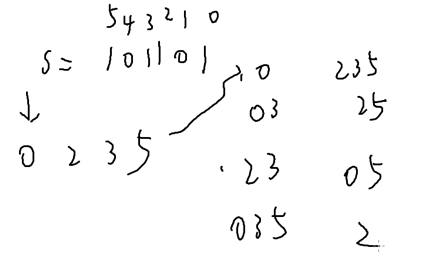 5 4 3 2 1 0
S = 1 0 1 1 0 1
0 2 3 5
0 235
03 25
23 05
035 2